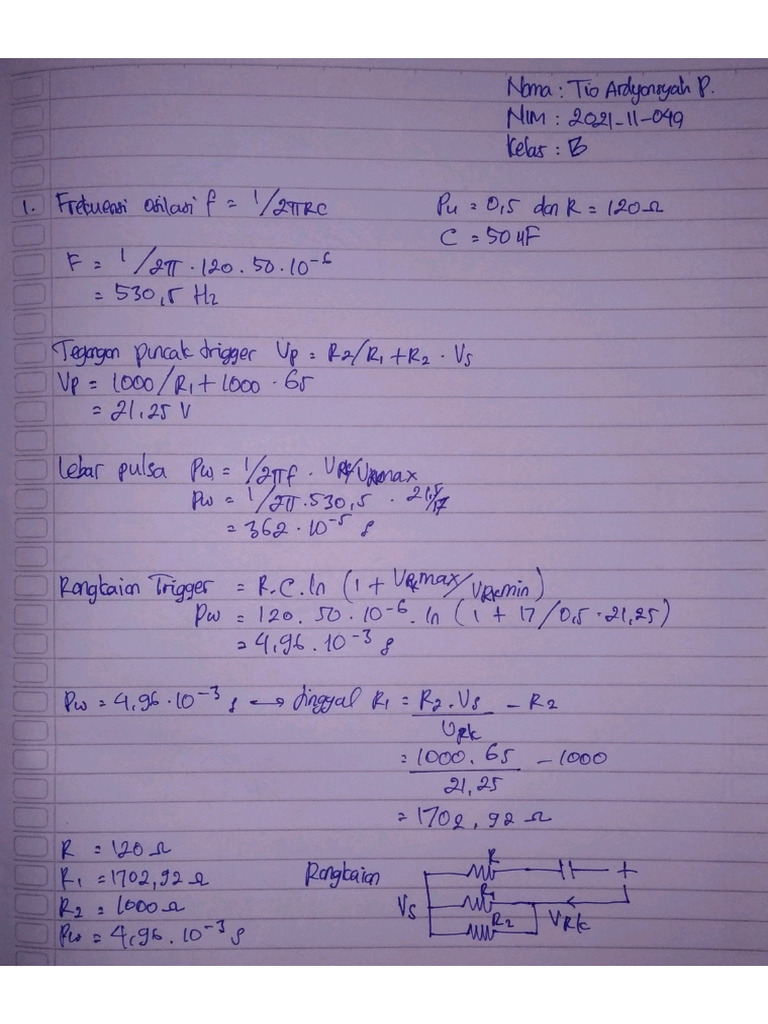 Nama : Tio Ardyansyah P.
NIM : 2021-11-049
Kelas : B
1. Frekuensi osilasi f = 1/2πRC
Pu = 0,5 dan R = 120Ω
C = 50 uF
F = 1/2π · 120 . 50 . 10⁻⁶
= 530,5 Hz
Tegangan puncak trigger Vp = R2/R1 + R2 · Vs
Vp = 1000/R1 + 1000 · 65
= 21,25 V
Lebar pulsa Pw = 1/2πf · VRk/VRkmax
Pw = 1/2π . 530,5 · 21,5/17
= 362 · 10⁻⁵ s
Rangkaian Trigger = R.C.ln (1 + VRkmax/VRkmin)
Pw = 120 . 50 · 10⁻⁶ . ln (1 + 17/0,5 · 21,25)
= 4,96 . 10⁻³ s
Pw = 4,96 · 10⁻³ s → tinggal R1 = R2 . Vs / VRk − R2
= 1000 . 65 / 21,25 − 1000
= 1702,92 Ω
R = 120 Ω
R1 = 1702,92 Ω
R2 = 1000 Ω
Pw = 4,96 . 10⁻³ s
Rangkaian
R
R1
R2
Vs
VRk
+